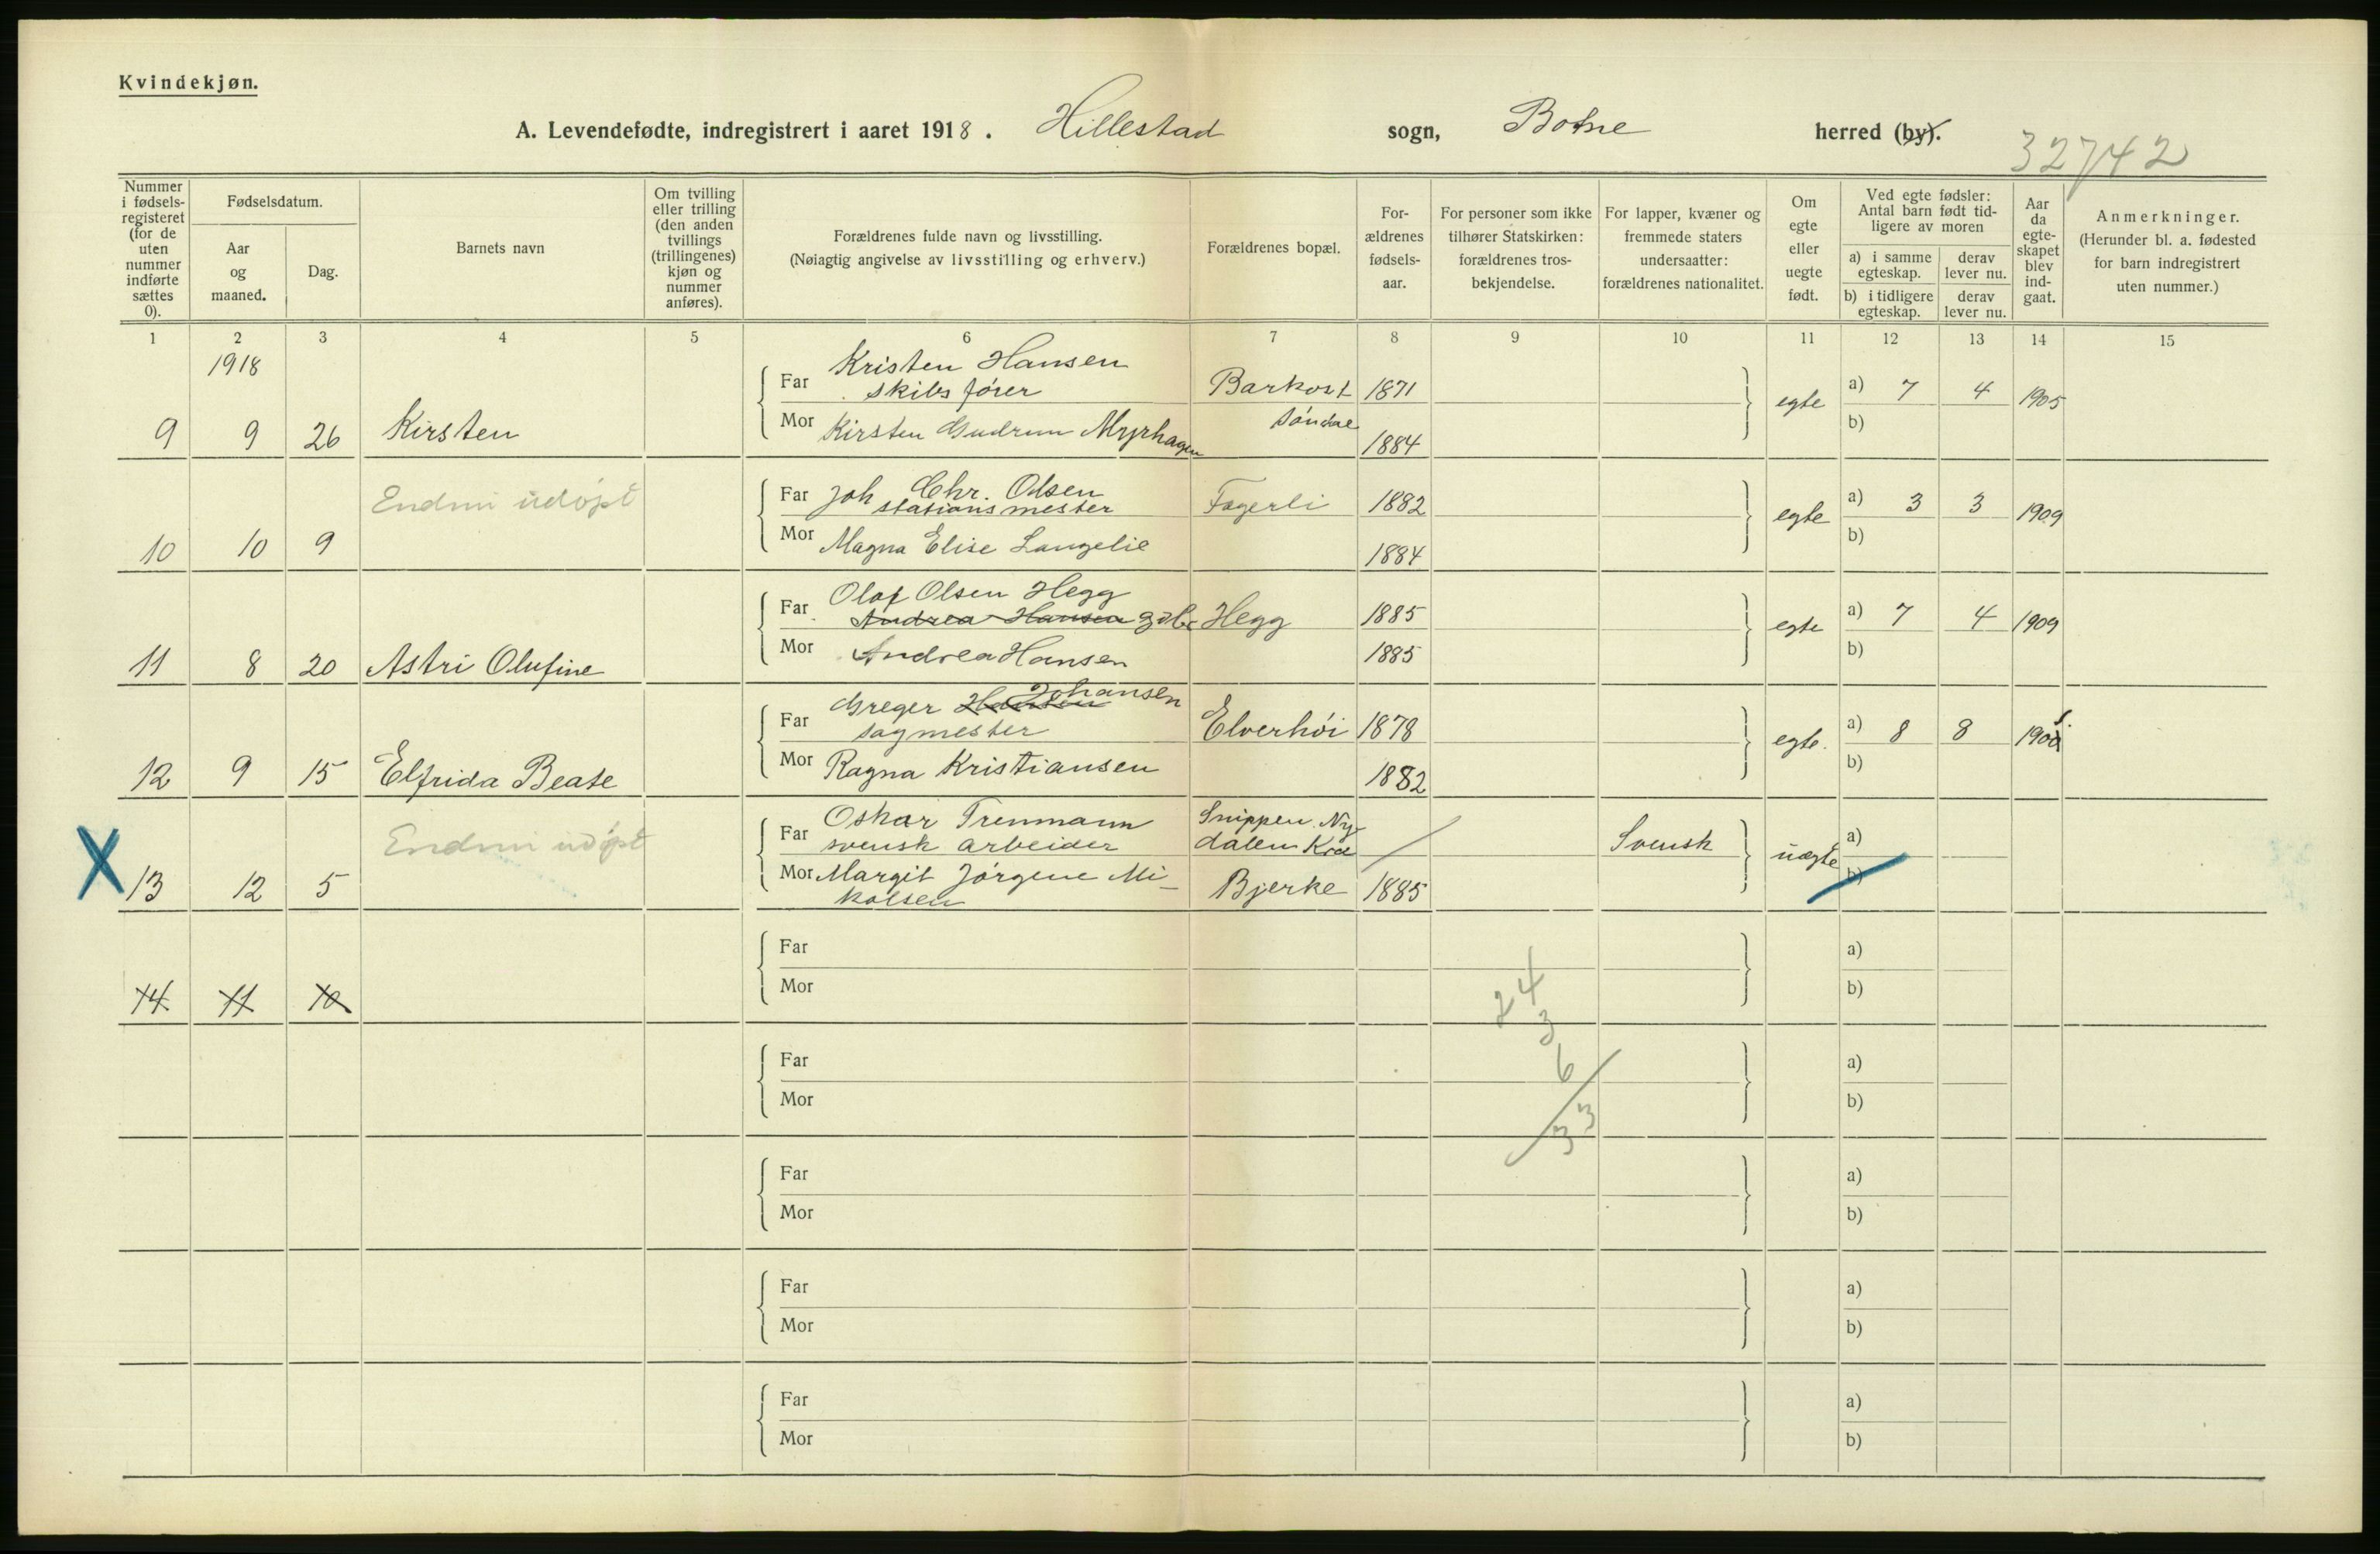 Kvindekjøn.
A. Levendefødte, indregistrert i aaret 1918. Hillestad sogn, Botne herred (by).
32742
Nummer i fødsels-registeret (for de uten nummer indførte sættes 0).
Fødselsdatum.
Aar og maaned.
Dag.
Barnets navn
Om tvilling eller trilling (den anden tvillings (trillingenes) kjøn og nummer anføres).
Forældrenes fulde navn og livsstilling.
(Nøiagtig angivelse av livsstilling og erhverv.)
Forældrenes bopæl.
For-ældrenes fødsels-aar.
For personer som ikke tilhører Statskirken: forældrenes tros-bekjendelse.
For lapper, kvæner og fremmede staters undersaatter: forældrenes nationalitet.
Om egte eller uegte født.
Ved egte fødsler: Antal barn født tid-ligere av moren
a) i samme egteskap.
derav lever nu.
b) i tidligere egteskap.
derav lever nu.
Aar da egte-skapet blev ind-gaat.
Anmerkninger.
(Herunder bl. a. fødested for barn indregistrert uten nummer.)
1 2 3 4 5 6 7 8 9 10 11 12 13 14 15
1918
Far Kristen Hansen
skibsfører Barkost 1871 egte a) 7 4 1905
9 9 26 Kirsten Mor Kirsten Gudrun Myrhagen Søndre 1884 b)
Endnu udøpt Far Joh Chr. Olsen
stationsmester Fagerli 1882 egte a) 3 3 1909
10 10 9 Mor Magna Elise Langelie 1884 b)
Far Olaf Olsen Hegg
Andrea Hansen gbr Hegg 1885 egte a) 7 4 1909
11 8 20 Astri Olufine Mor Andrea Hansen 1885 b)
Far Greger Hansen Johansen
sagmester Elverhöi 1878 egte. a) 8 8 1905
12 9 15 Elfrida Beate Mor Ragna Kristiansen 1882 b)
Endnu udøpt Far Oskar Trenmann Snippen. Ny-
svensk arbeider dalen Kra Svensk uægte a)
X 13 12 5 Mor Margit Jørgene Mi- Bjerke 1885 b)
kalsen
14 11 10 Far a)
Mor b)
24
3
6
33
Far a)
Mor b)
Far a)
Mor b)
Far a)
Mor b)
Far a)
Mor b)